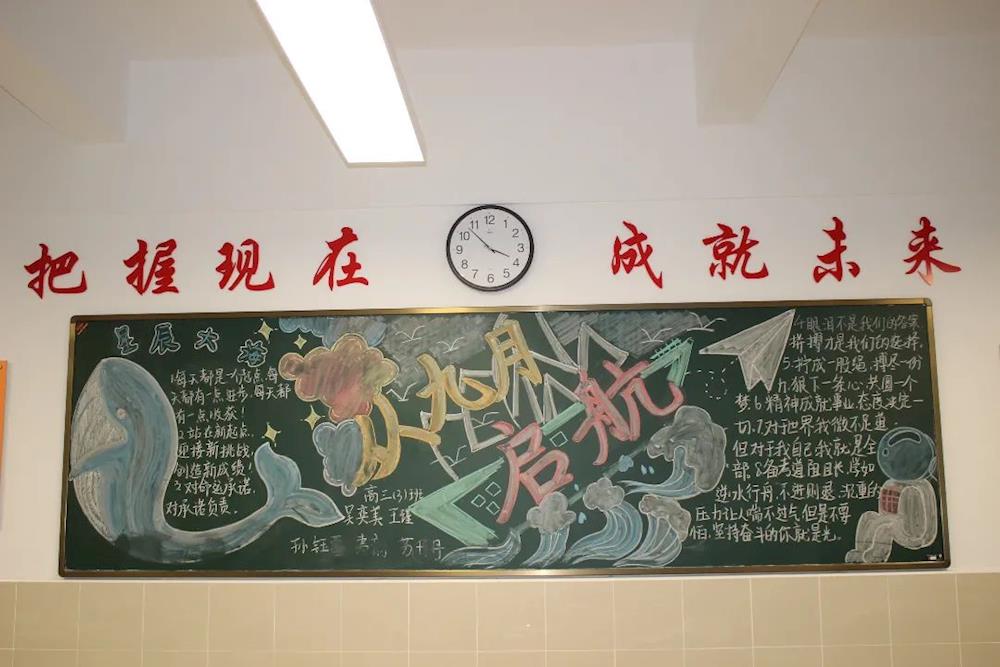 把握现在
成就未来
12
1
2
3
4
5
6
7
8
9
10
11
星辰大海
1.每天都是一个起点,每
天都有一点进步,每天都
有一点收获!
2.站在新起点
迎接新挑战
创造新成绩!
3.对命运承诺,
对承诺负责。
从九月
启航
高三(3)班
吴奕美 王
孙钰 苏
4.眼泪不是我们的答案
拼搏才是我们的选择.
5.拧成一股绳,搏尽一份
力,狠下一条心,共圆一个
梦.6.精神成就事业,态度决定一
切.7.对于世界我微不足道
但对于我自己我就是全
部.8.备考道阻且长,学如
逆水行舟,不进则退.沉重的
压力让人喘不过气,但是不要
怕,坚持奋斗的你就是光。